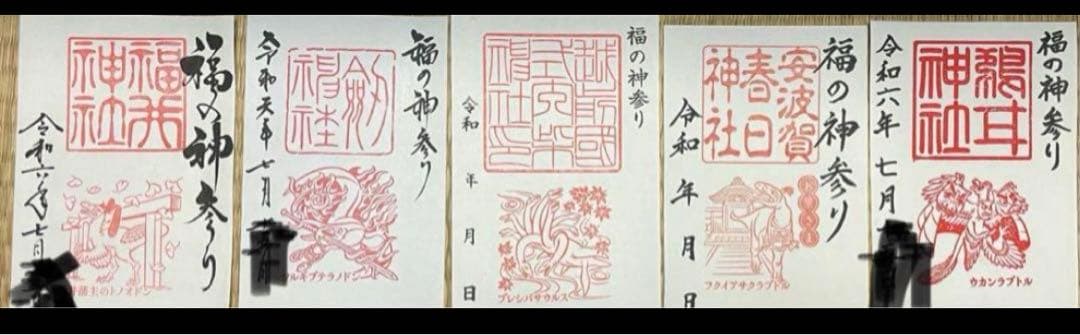 福の神参り
福井
神社
令和六年七月
藩主のトノオドン
福の神参り
劔
神社
令和六年七月
ツルギプテラノドン
福の神参り
越前國
式内第
令和 年 月 日
プレシバサウルス
福の神参り
安波賀
春日
神社
令和 年 月 日
フクイアサクラブトル
福の神参り
鵜甘
神社
令和六年七月
ウカンラプトル